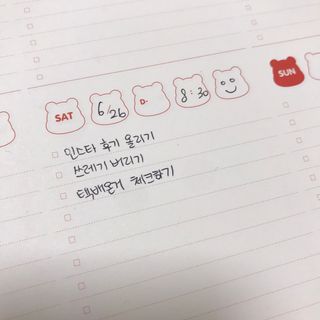 SAT 6/26 D- 8:30
SUN
인스타 후기 올리기
쓰레기 버리기
택배온거 체크하기